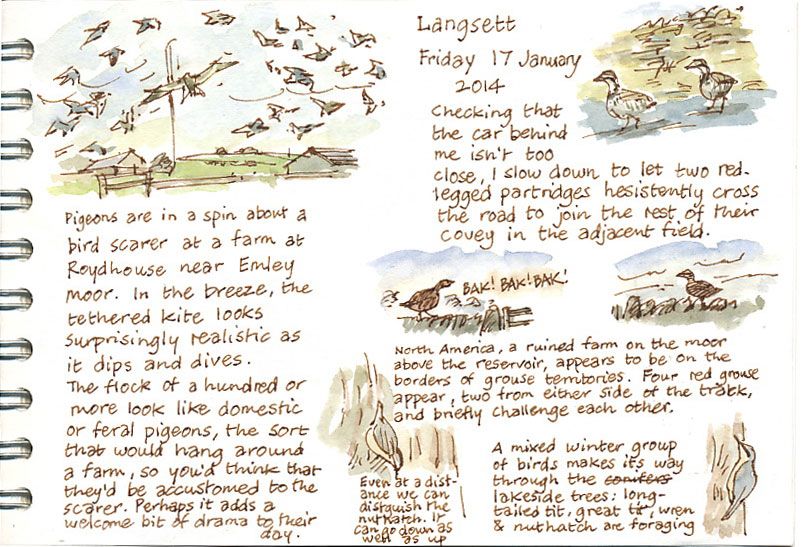 Pigeons are in a spin about a
bird scarer at a farm at
Roydhouse near Emley
moor. In the breeze, the
tethered kite looks
surprisingly realistic as
it dips and dives.
The flock of a hundred or
more look like domestic
or feral pigeons, the sort
that would hang around
a farm, so you'd think that
they'd be accustomed to the
scarer. Perhaps it adds a
welcome bit of drama to their
day.
Langsett
Friday 17 January
2014
Checking that
the car behind
me isn't too
close, I slow down to let two red-
legged partridges hesistently cross
the road to join the rest of their
covey in the adjacent field.
BAK! BAK! BAK!
North America, a ruined farm on the moor
above the reservoir, appears to be on the
borders of grouse territories. Four red grouse
appear, two from either side of the track,
and briefly challenge each other.
Even at a dist-
ance we can
distiguish the
nuthatch. It
can go down as
well as up
A mixed winter group
of birds makes its way
through the conifers
lakeside trees: long-
tailed tit, great tit, wren
& nuthatch are foraging